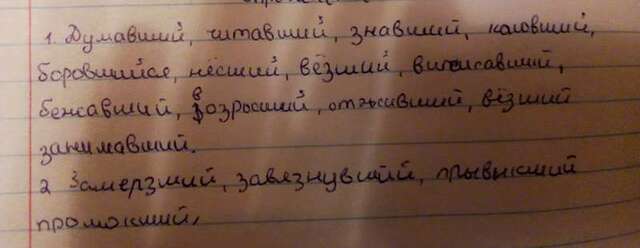 1. Думавший, читавший, знавший, коловший,
боровшийся, нёсший, вёзший, вписавший,
бежавший, возросший, отживший, вёзший
занимавший.
2 Замерзший, завязнувший, прывыкший
промокший,